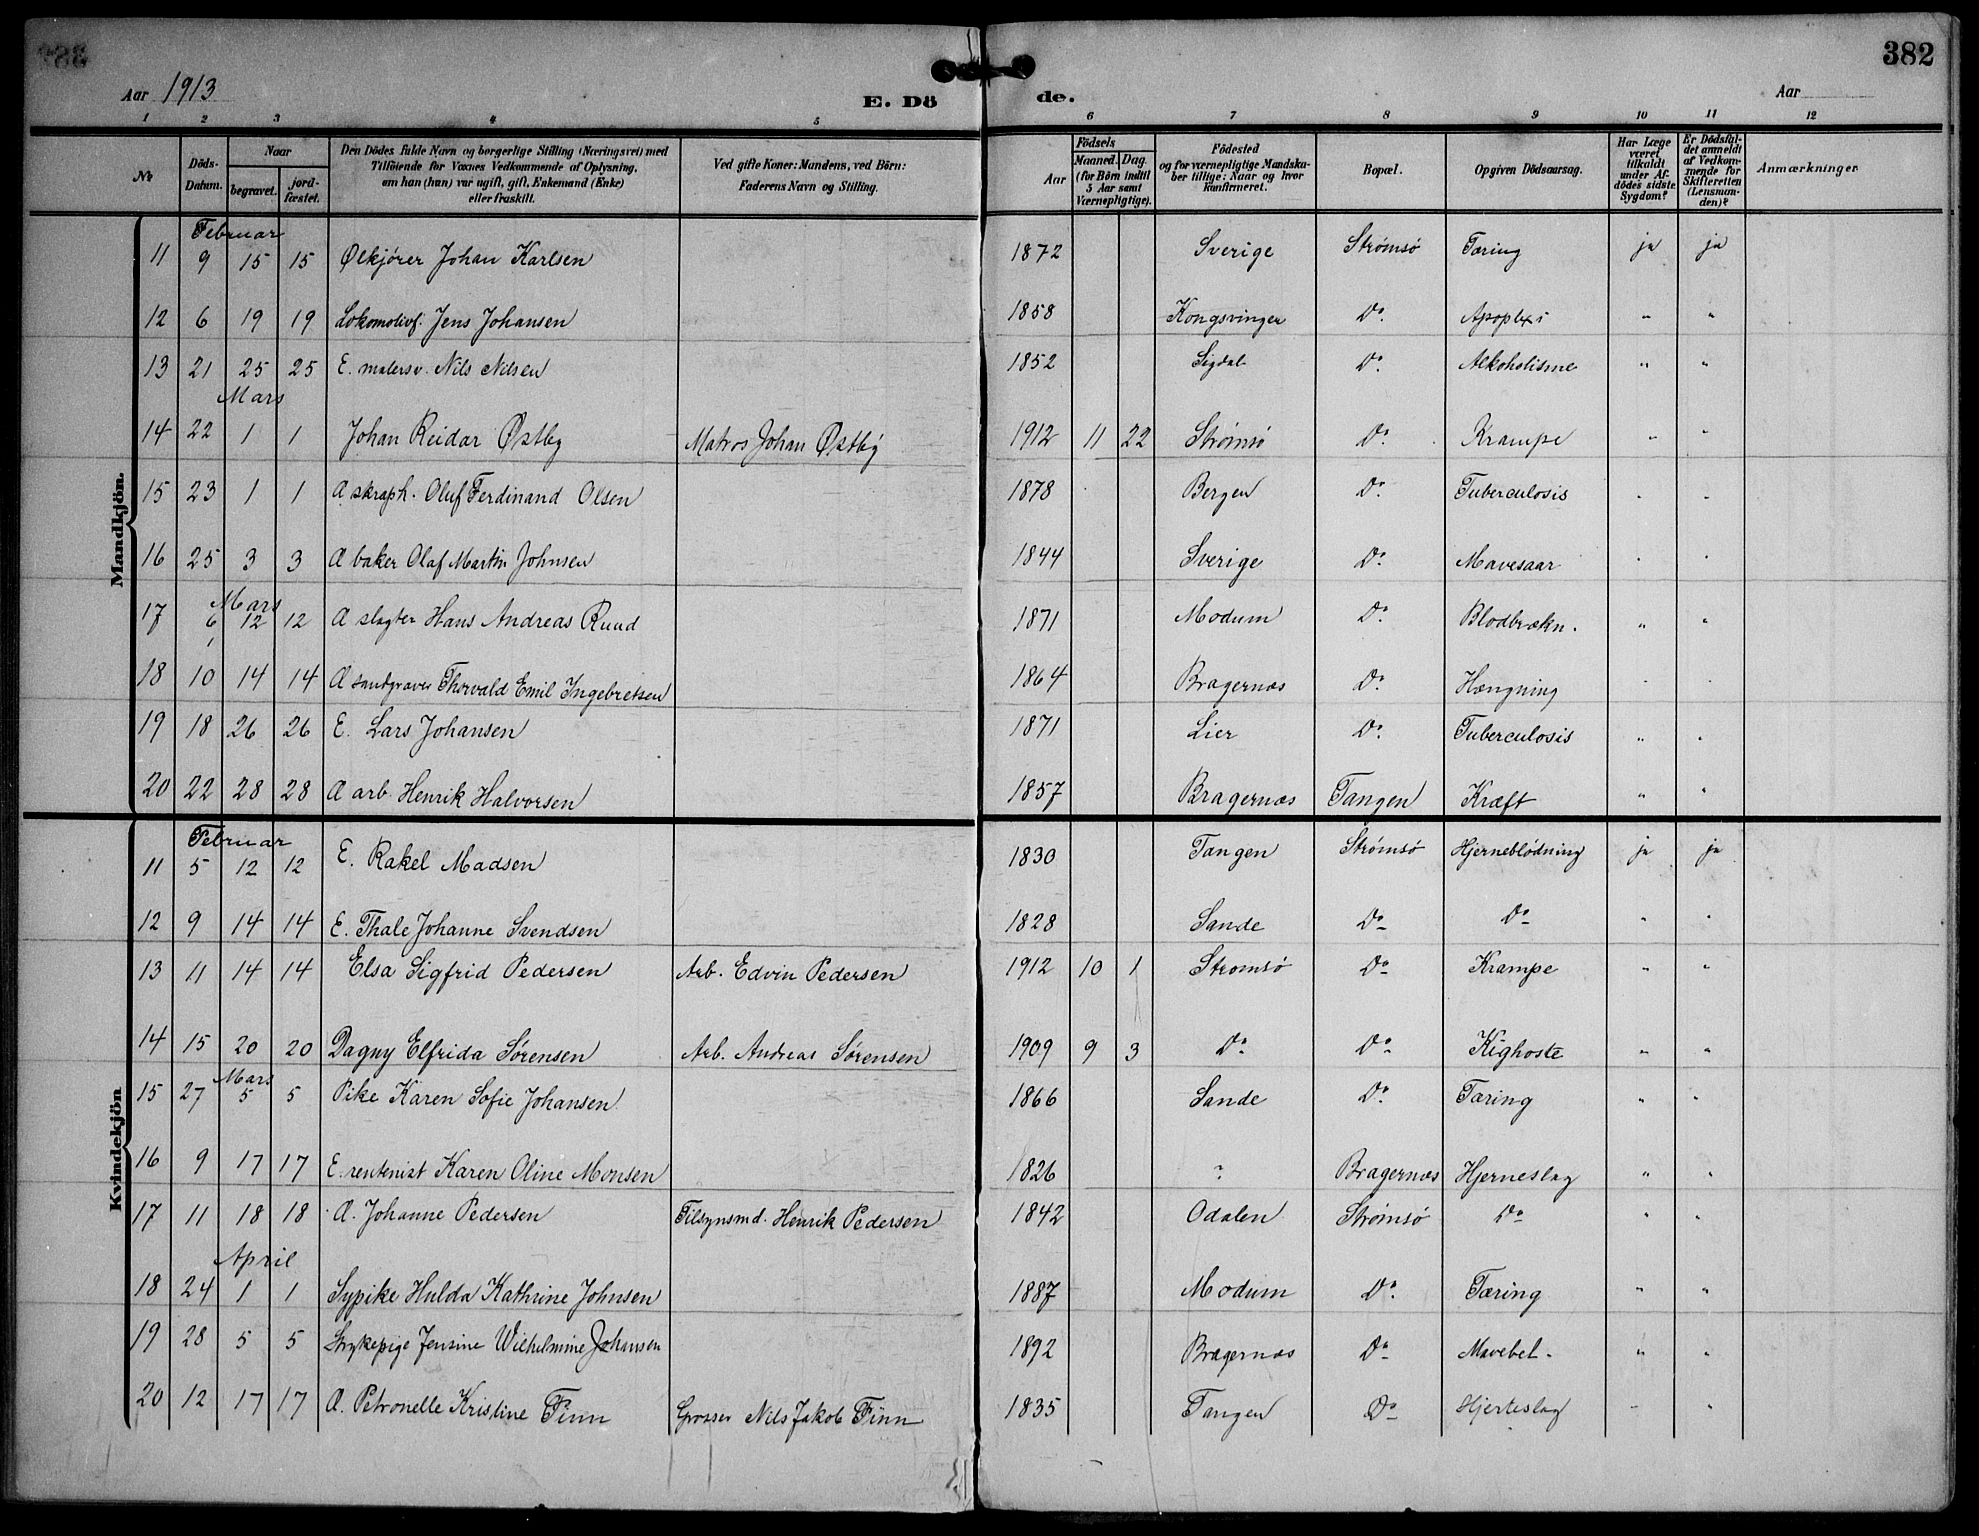 382
Aar 1913
E. Dö
de.
Aar
1 2 3 4 5 6 7 8 9 10 11 12
No
Döds-Datum.
Naar
begravet.
jord-fæstet.
Den Dödes fulde Navn og borgerlige Stilling (Næringsvei) med
Tilföiende for Voxnes Vedkommende af Oplysning,
om han (hun) var ugift, gift, Enkemand (Enke)
eller fraskilt.
Ved gifte Koner: Mandens, ved Börn:
Faderens Navn og Stilling.
Födsels
Aar
Maaned. Dag.
(for Börn indtil
5 Aar samt
Værnepligtige).
Födested
og for værnepligtige Mandska-
ber tillige: Naar og hvor
konfirmeret.
Bopæl.
Opgiven Dödsaarsag.
Har Læge
været
tilkaldt
under Af-
dödes sidste
Sygdom?
Er Dödsfal-
det anmeldt
af Vedkom-
mende for
Skifteretten
(Lensman-
den)?
Anmærkninger
Mandkjön.
Februar
11 9 15 15 Ølkjører Johan Karlsen 1872 Sverige Strømsö Tæring ja ja
12 6 19 19 Lokomotivf. Jens Johansen 1858 Kongsvinger Do. Apoplexi " "
13 21 25 25 E. malersv. Nils Nilsen 1852 Sigdal Do. Alkoholisme " "
Mars
14 22 1 1 Johan Reidar Østby Matros Johan Østby 1912 11 22 Strømsö Do. Krampe " "
15 23 1 1 A skraph. Oluf Ferdinand Olsen 1878 Bergen Do. Tuberculosis " "
16 25 3 3 A baker Olaf Martin Johnsen 1844 Sverige Do. Mavesaar " "
Mars
17 6 12 12 A slagter Hans Andreas Ruud 1871 Modum Do. Blodbrækn. " "
18 10 14 14 A sandgraver Thorvald Emil Ingebretsen 1864 Bragernæs Do. Hængning " "
19 18 26 26 E. Lars Johansen 1871 Lier Do. Tuberculosis " "
20 22 28 28 A arb. Henrik Halvorsen 1857 Bragernæs Tangen Kræft " "
Kvindekjön
Februar
11 5 12 12 E. Rakel Madsen 1830 Tangen Strømsö Hjerneblödning ja ja
12 9 14 14 E. Thale Johanne Svendsen 1828 Sande Do Do " "
13 11 14 14 Elsa Sigfrid Pedersen Arb. Edvin Pedersen 1912 10 1 Strømsö Do Krampe " "
14 15 20 20 Dagny Elfrida Sørensen Arb. Andreas Sørensen 1909 9 3 Do Do Kighoste " "
Mars
15 27 5 5 Pike Karen Sofie Johansen 1866 Sande Do. Tæring " "
16 9 17 17 E. rentenist Karen Oline Monsen 1826 ? Bragernæs Hjerneslag " "
17 11 18 18 A. Johanne Pedersen Tilsynsmd. Henrik Pedersen 1842 Odalen Strømsö Do " "
April
18 24 1 1 Sypike Hulda Kathrine Johnsen 1887 Modum Do. Tæring " "
19 28 5 5 Strykepige Jensine Wilhelmine Johansen 1892 Bragernæs Do Mavebet. " "
20 12 17 17 A. Petronelle Kristine Finn Grosser Nils Jakob Finn 1835 Tangen Do Hjerteslag " "